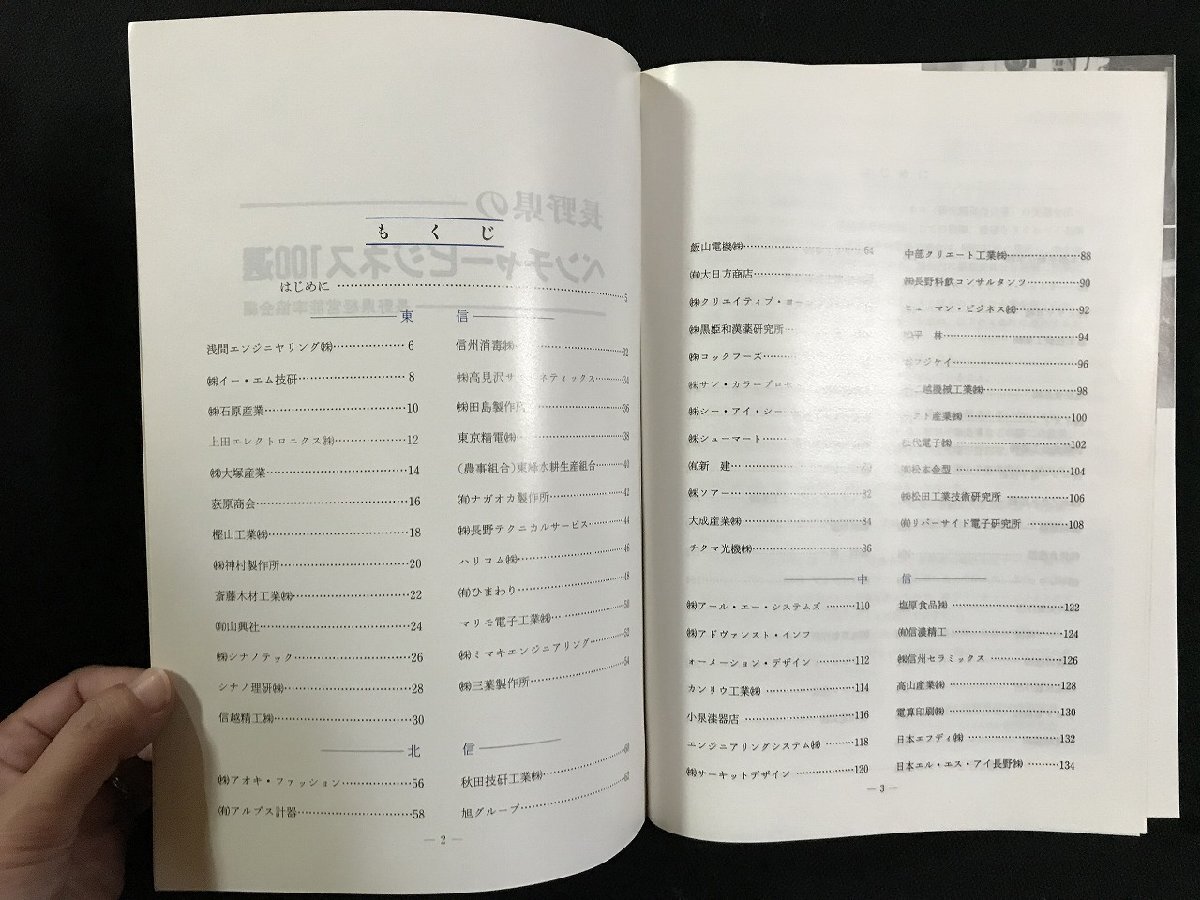 もくじ
はじめに 5
東信
浅間エンジニヤリング㈱ 6
㈱イー・エム技研 8
㈱石原産業 10
上田エレクトロニクス㈱ 12
㈱大塚産業 14
荻原商会 16
樫山工業㈱ 18
㈱神村製作所 20
斎藤木材工業㈱ 22
㈲山興社 24
㈱シナノテック 26
シナノ理研㈱ 28
信越精工㈱ 30
信州消毒㈱ 32
㈱高見沢サイバネティックス 34
㈱田島製作所 36
東京精電㈱ 38
(農事組合)東塚水耕生産組合 40
㈲ナガオカ製作所 42
㈱長野テクニカルサービス 44
ハリコム㈱ 46
㈲ひまわり 48
マリモ電子工業㈱ 50
㈱ミマキエンジニアリング 52
㈱三葉製作所 54
北信
㈱アオキ・ファッション 56
㈲アルプス計器 58
秋田技研工業㈱ 60
旭グループ 62
― 2 ―
飯山電機㈱ 64
㈲大日方商店
㈱クリエイティブ・ヨーコ
㈱黒姫和漢薬研究所
㈱コックフーズ
㈱サン・カラープロセ
㈱シー・アイ・シー
㈱シューマート
㈲新建
㈱ソアー 82
大成産業㈱ 84
チクマ光機㈱ 86
中部クリエート工業㈱ 88
㈱長野科飲コンサルタンツ 90
ヒューマン・ビジネス㈱ 92
平林 94
フジャイ 96
越機械工業㈱ 98
産業㈱ 100
松代電子㈱ 102
㈱松本金型 104
㈱松田工業技術研究所 106
㈲リバーサイド電子研究所 108
中信
㈱アール・エー・システムズ 110
㈱アドヴァンスト・インフ
ォーメーション・デザイン 112
カンリウ工業㈱ 114
小泉漆器店 116
エンジニアリングシステム㈱ 118
㈱サーキットデザイン 120
塩原食品㈱ 122
㈲信濃精工 124
㈱信州セラミックス 126
高山産業㈱ 128
電算印刷㈱ 130
日本エフディ㈱ 132
日本エル・エス・アイ長野㈱ 134
― 3 ―
長野県の
ベンチャービジネス100選
長野県経営能率協会編